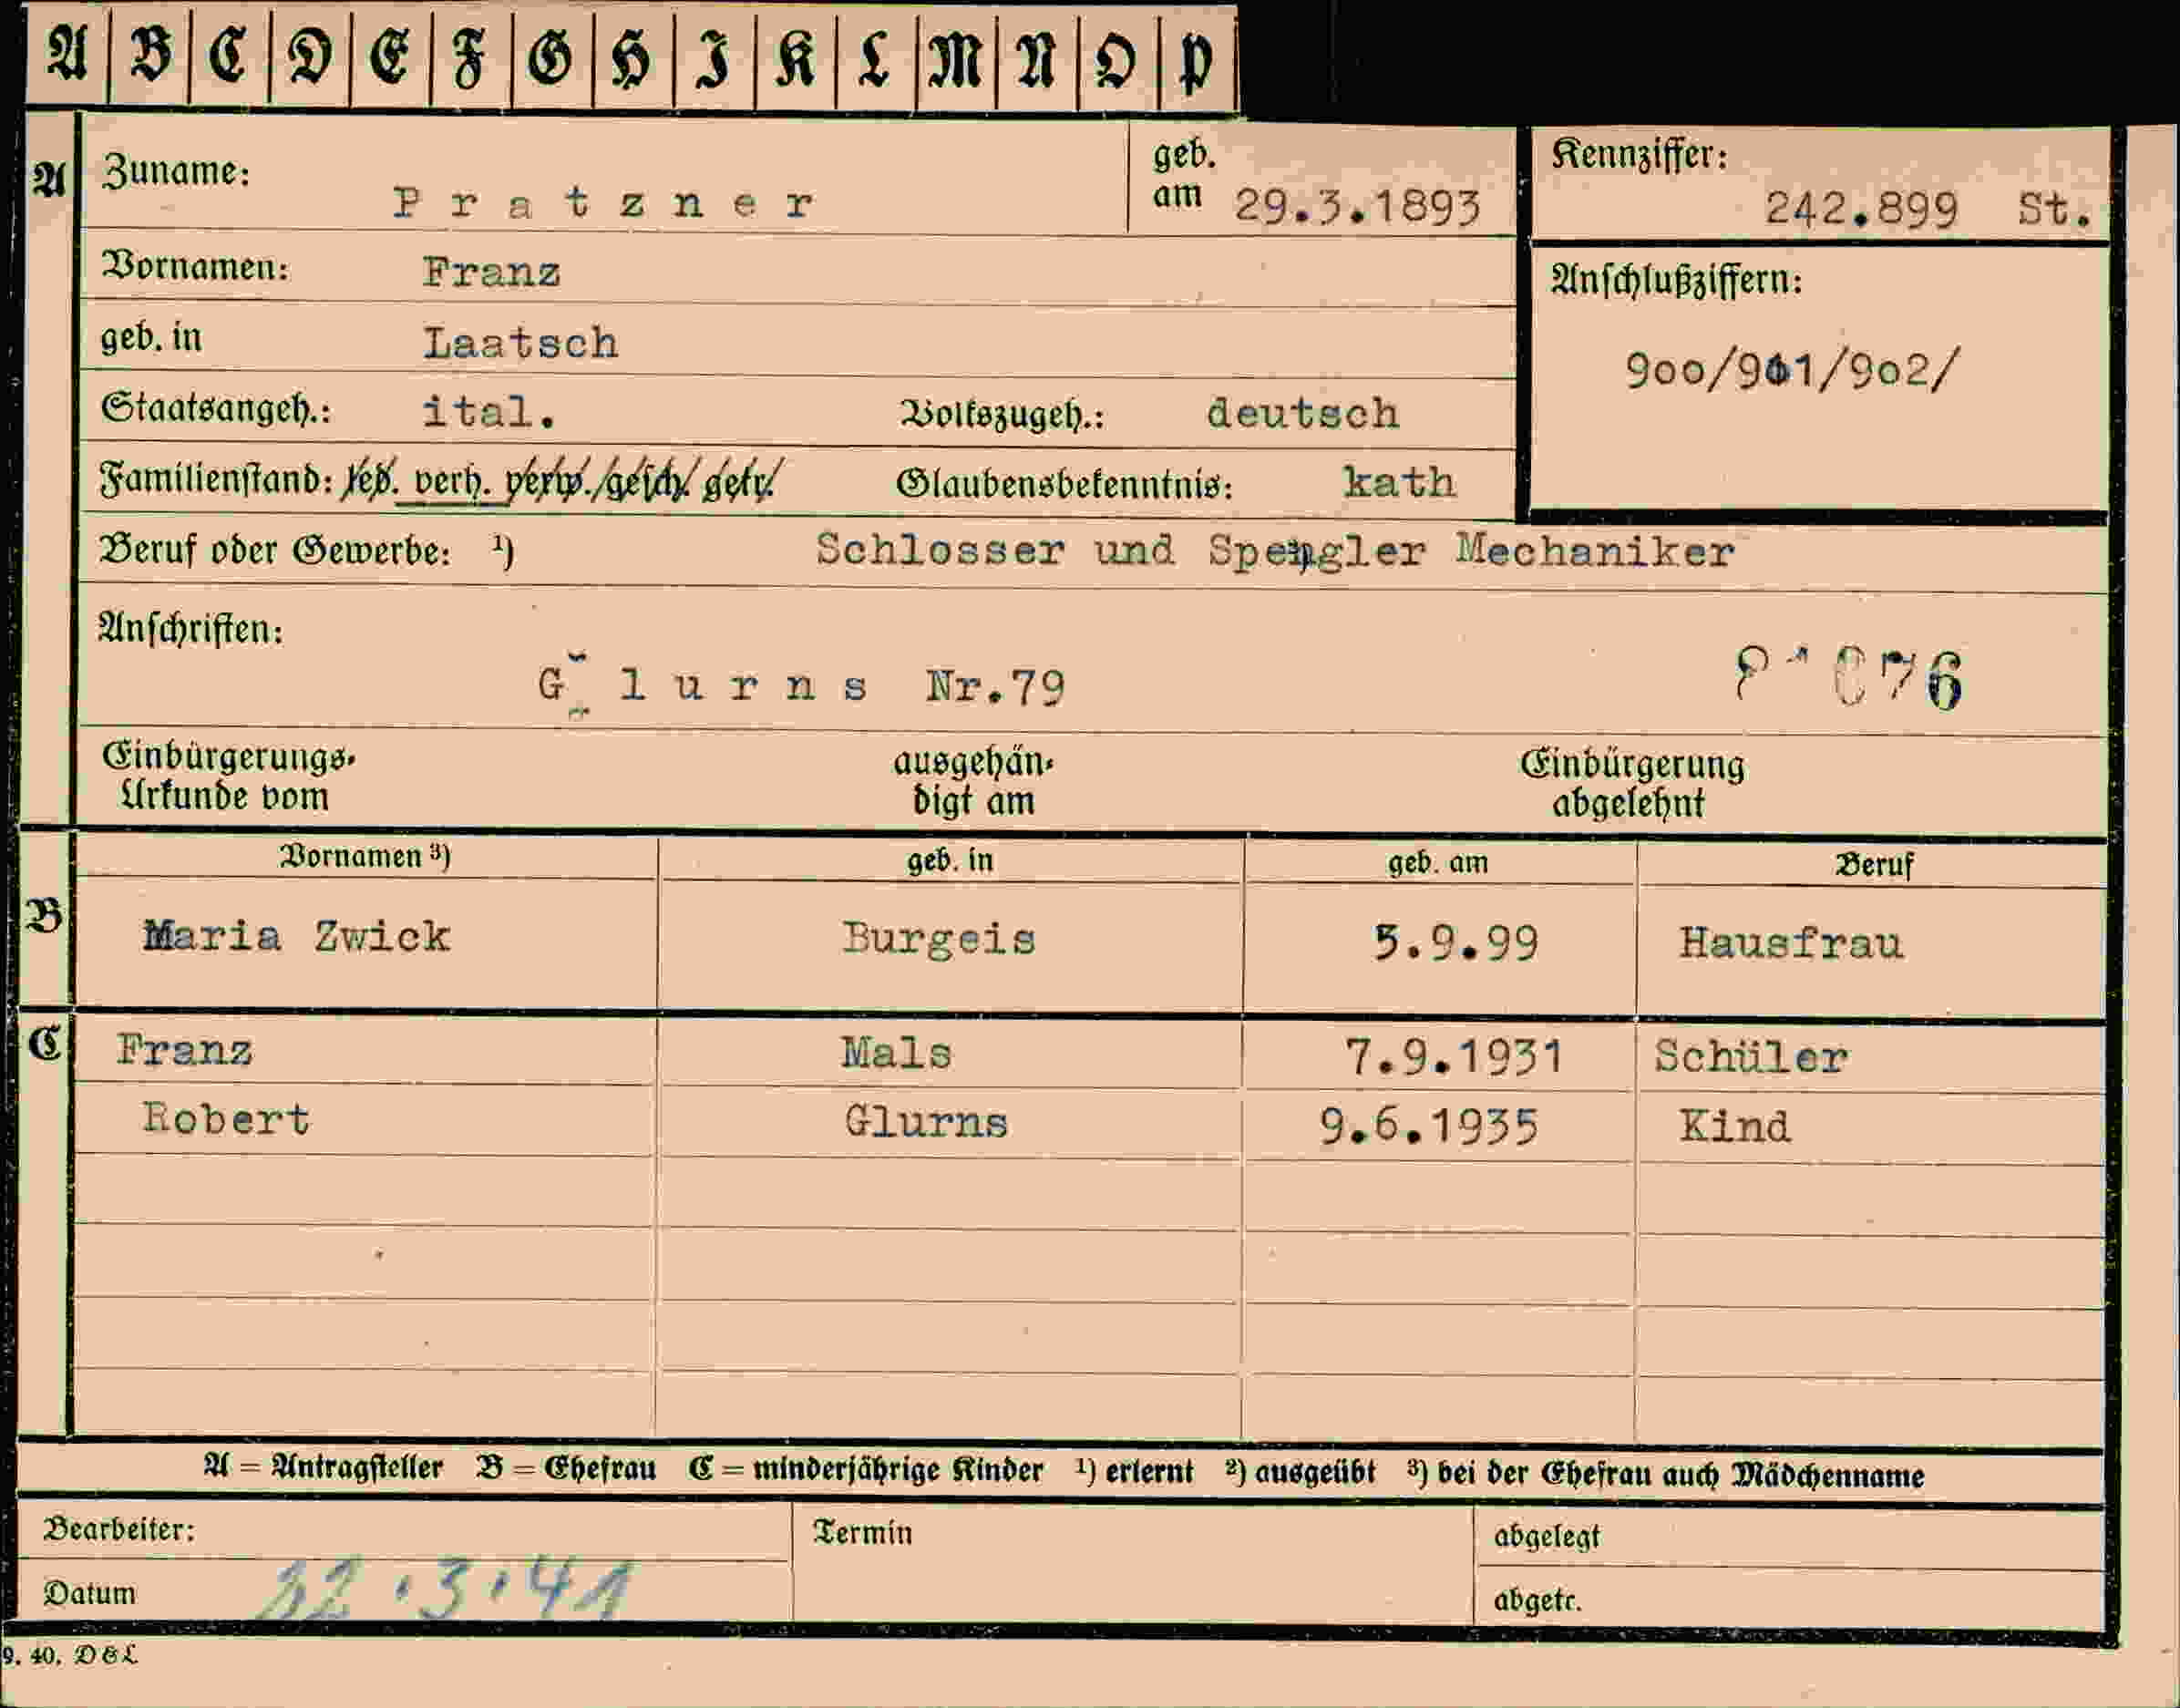 A B C D E F G H I K L M N O P
A Zuname: Pratzner geb. am 29.3.1893 Kennziffer: 242.899 St.
Vornamen: Franz
Anschlußziffern:
geb. in Laatsch
900/901/902/
Staatsangeh.: ital. Volkszugeh.: deutsch
Familienstand: led. verh. verw. gesch. getr. Glaubensbekenntnis: kath
Beruf oder Gewerbe: ¹) Schlosser und Spengler Mechaniker
Anschriften:
Glurns Nr.79
Einbürgerungs-Urkunde vom ausgehändigt am Einbürgerung abgelehnt
Vornamen ³) geb. in geb. am Beruf
B Maria Zwick Burgeis 5.9.99 Hausfrau
C Franz Mals 7.9.1931 Schüler
Robert Glurns 9.6.1935 Kind
A = Antragsteller B = Ehefrau C = minderjährige Kinder ¹) erlernt ²) ausgeübt ³) bei der Ehefrau auch Mädchenname
Bearbeiter: Termin abgelegt
Datum 22.3.41 abgetr.
9. 40. D&L